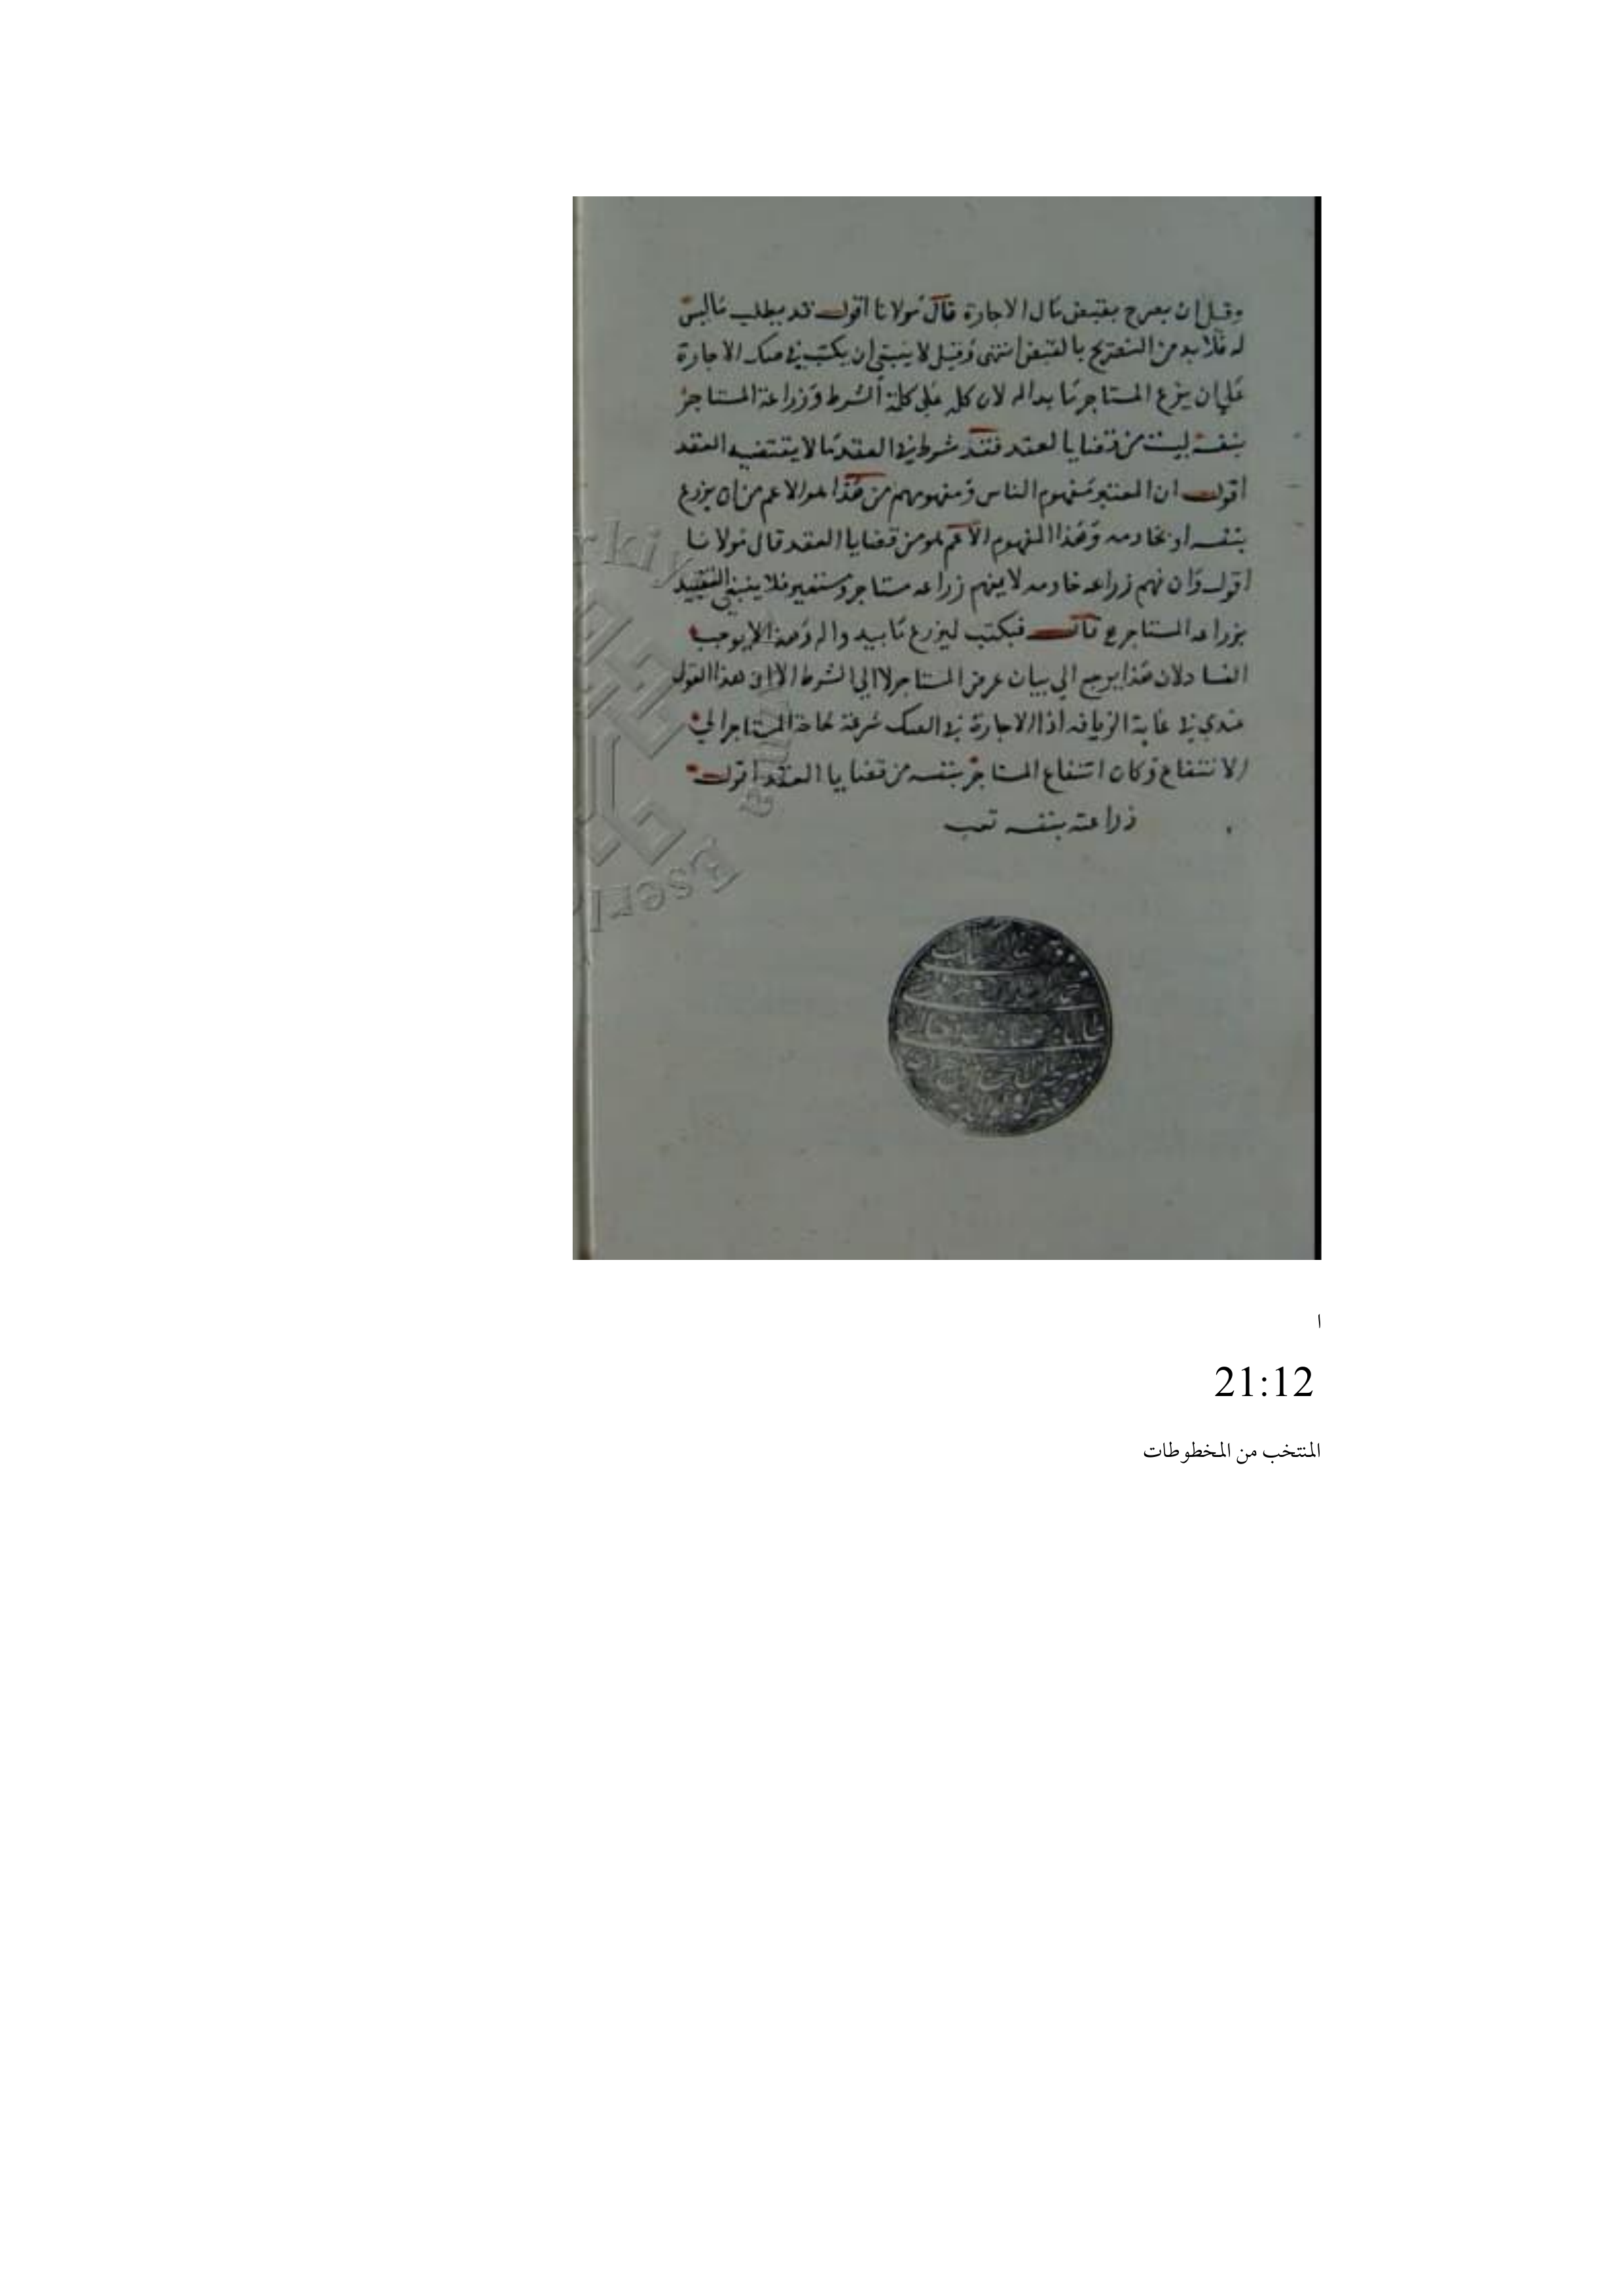 وقيل ان يصرح بقبض مال الاجارة قال مولانا اقول قد يطلب ماليس
له فلا بد من التصريح بالقبض انتهى وقيل لا ينبغي ان يكتب في صك الاجارة
على ان يزرع المستاجر ما بداله لان كلمة على كلمة الشرط وزراعة المستاجر
بنفسه ليست من قضايا العقد فقد شرط في العقد ما لا يقتضيه العقد
اقول ان المعتبر مفهوم الناس ومفهومهم من هذا هو الاعم من ان يزرع
بنفسه او بخادمه وهذا المفهوم الاعم هو من قضايا العقد قال مولانا
اقول وان فهم زراعه خادمه لا يفهم زراعه مستاجر ومستعير فلا ينبغي التقييد
بزراعه المستاجر قال فيكتب ليزرع ما يبدو اله وهذا لا يوجب
الفساد لان هذا يرجع الي بيان غرض المستاجر لا الي الشرط الا ان هذا القول
عندي في غاية الزيافه اذ الاجارة في الصك شرفة حاجة المستاجر الي
الانتفاع وكان انتفاع المستاجر بنفسه من قضايا العقد اقول
زراعته بنفسه تعب
Eserl
ا
21:12
المنتخب من المخطوطات